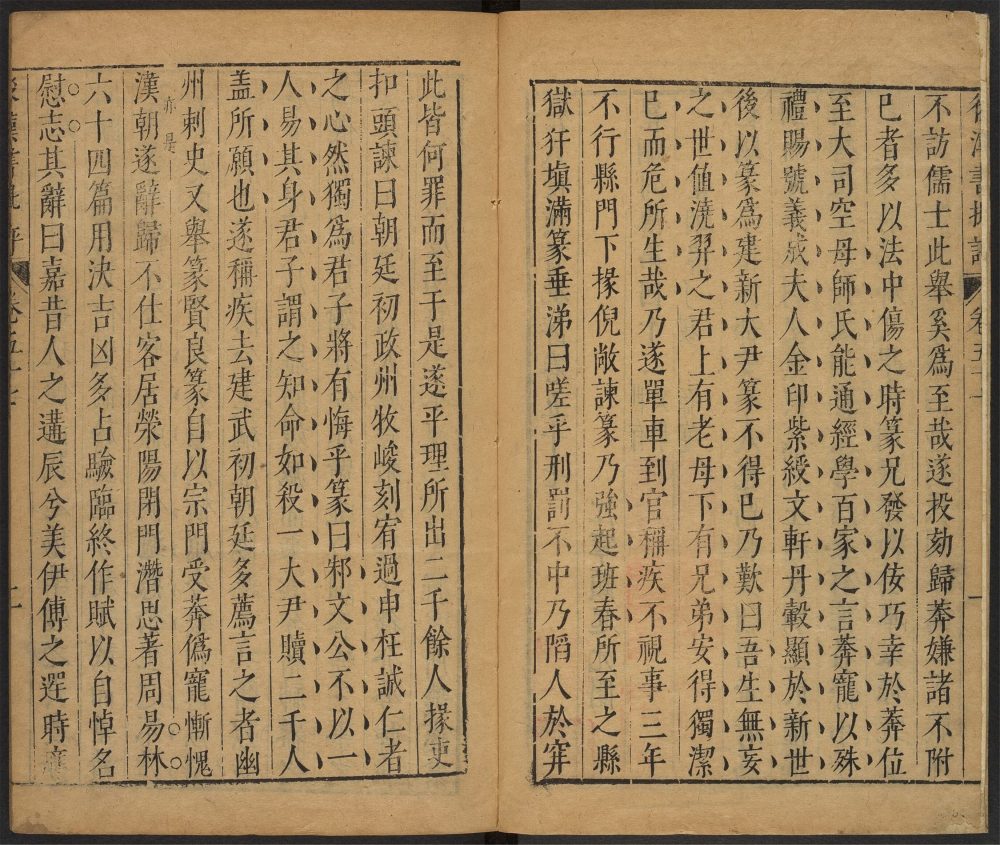 不訪儒士此舉奚為至哉遂投劾歸莽嫌諸不附
已者多以法中傷之時篆兄發以佞巧幸於莽位
至大司空母師氏能通經學百家之言莽寵以殊
禮賜號義成夫人金印紫綬文軒丹轂顯於新世
後以篆爲建新大尹篆不得已乃歎曰吾生無妄
之世值澆羿之君上有老母下有兄弟安得獨潔
已而危所生哉乃遂單車到官稱疾不視事三年
不行縣門下掾倪敞諫篆乃強起班春所至之縣
獄犴塡滿篆垂涕曰嗟乎刑罰不中乃陷人於穽
此皆何罪而至于是遂平理所出二千餘人掾吏
扣頭諫曰朝廷初政州牧峻刻宥過申枉誠仁者
之心然獨爲君子將有悔乎篆曰邾文公不以一
人易其身君子謂之知命如殺一大尹贖二千人
盖所願也遂稱疾去建武初朝廷多薦言之者幽
州刺史又舉篆賢良篆自以宗門受莽僞寵慚愧
亦是
漢朝遂辭歸不仕客居滎陽閉門潛思著周易林
六十四篇用決吉凶多占驗臨終作賦以自悼名
慰志其辭曰嘉昔人之遘辰兮美伊傅之遌時